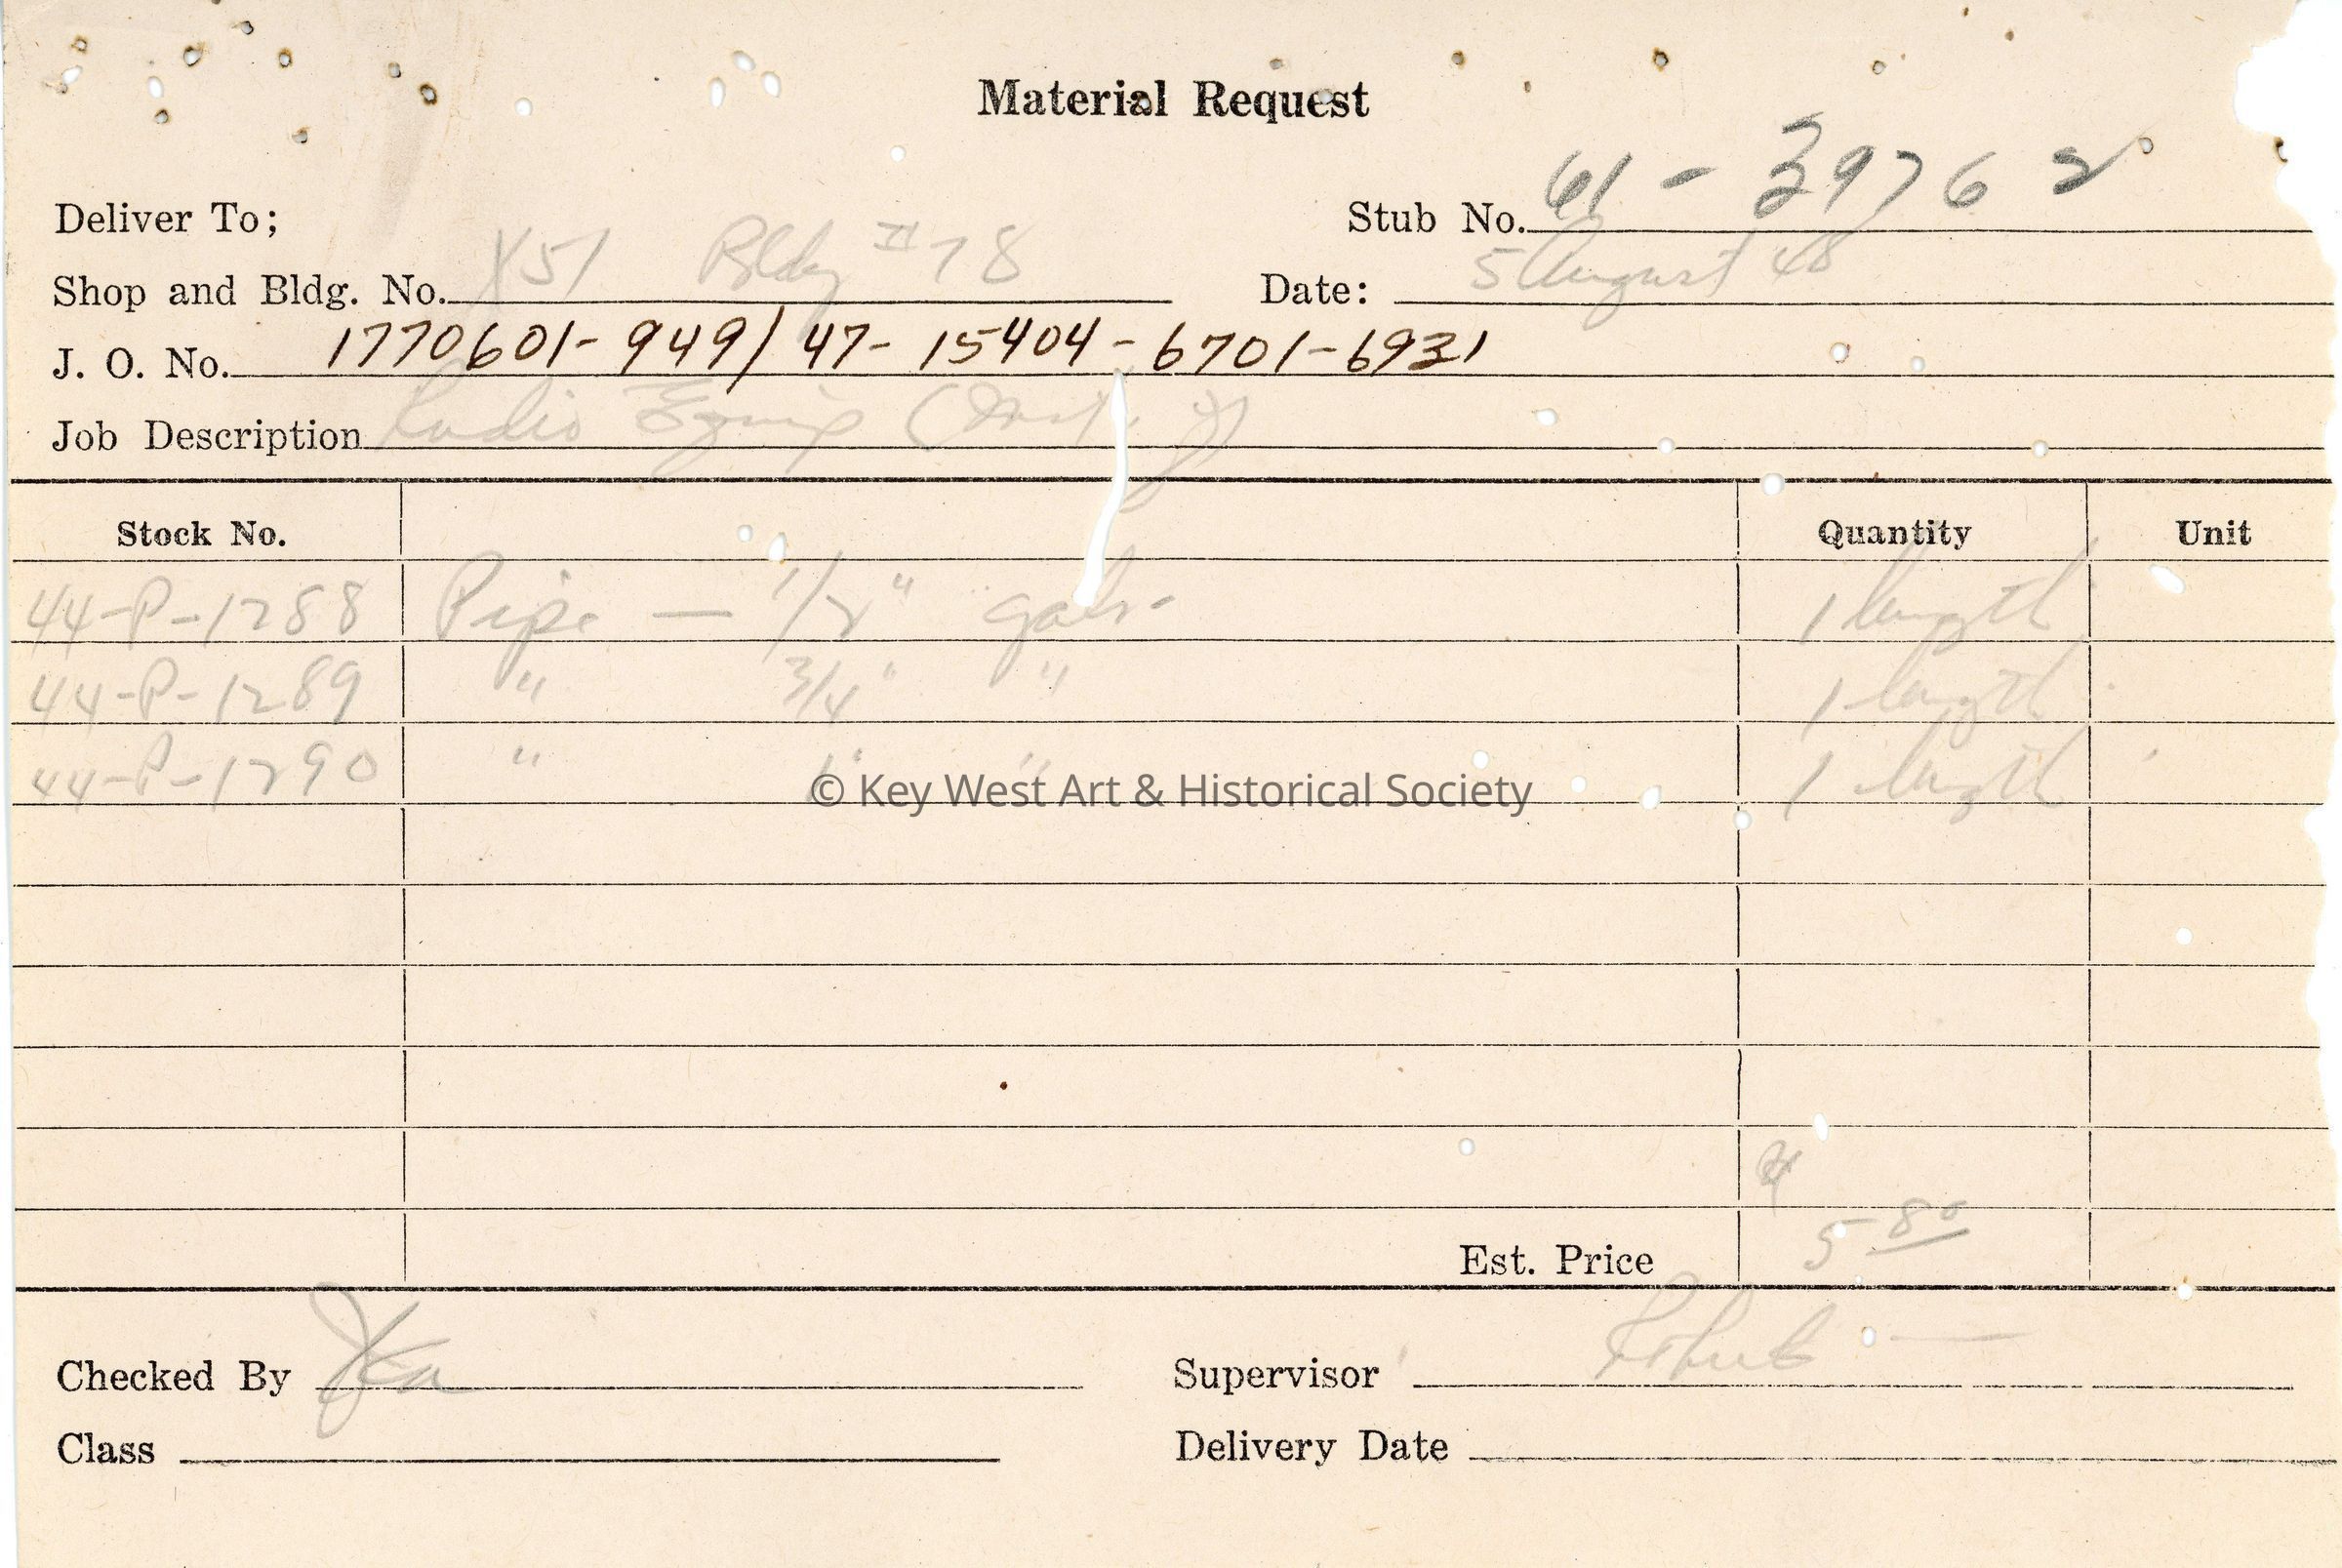 Material Request
Deliver To;
Stub No. 61 - 39762
Shop and Bldg. No. X51 Bldg #78
Date: 5 August 48
J. O. No. 1770601-949/47-15404-6701-6931
Job Description Radio Equip
Stock No. Quantity Unit
44-P-1288 Pipe — 1/2" galv- 1 length
44-P-1289 " 3/4" " 1 length
44-P-1290 " 1" " 1 length
© Key West Art & Historical Society
Est. Price 5 80
Checked By
Supervisor
Class
Delivery Date